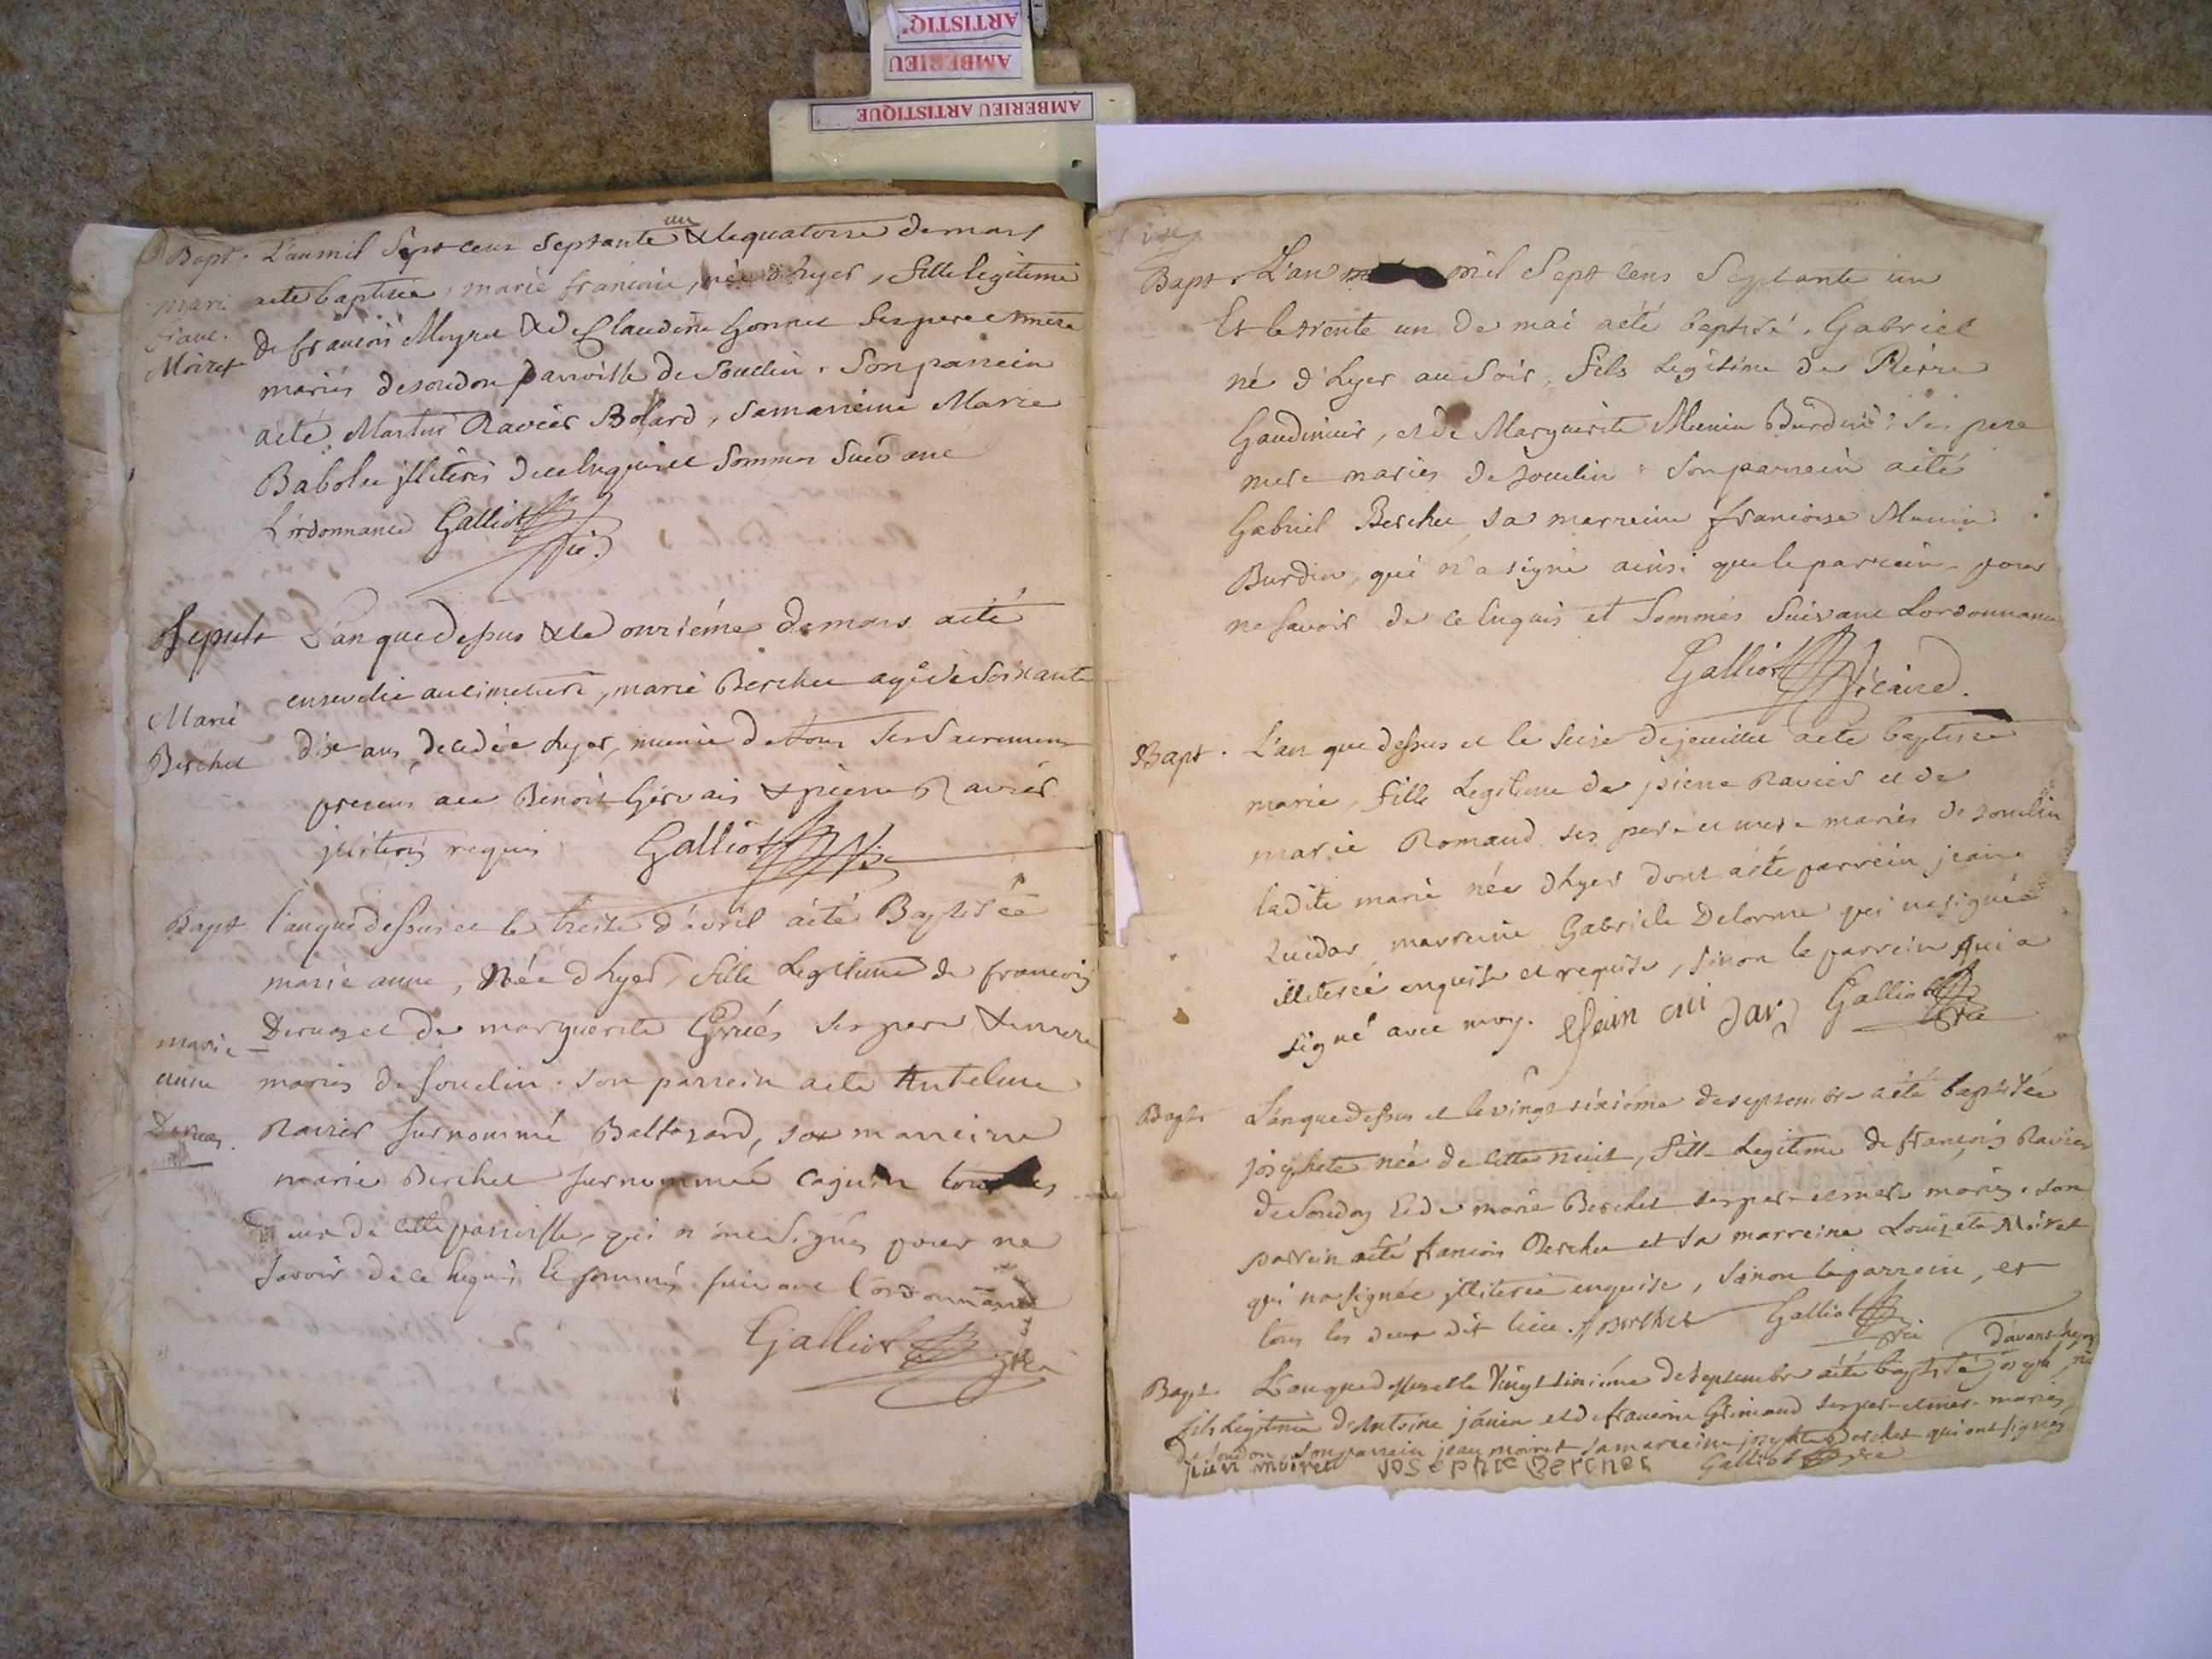 ARTISTIQ
AMBERIEU
AMBERIEU ARTISTIQUE
Bapt. L'an mil Sept cens Septante un & le quatorse de mars
Marie aeté baptisée, marie francoise, née d'hyer, fille legitime
franc. de francois Moyret & de Claudine Gonnet Ses pere & mere
Moiret mariés de soudon parroisse de Souclin. Son parrein
aété Martin Ravier Bolard, Sa marreine Marie
Babolat jlliterés de ce enquis et Sommés Suivant
L'ordonnance Galliot Vic.
Sepult L'an que dessus & le onzième de mars aété
ensevelie au cimetiere, marie Berchet agée de Soixante
Marie
dix ans, decedée hyer, munie de tous Ses Sacremens
Berchet
presens aec Benoit Gervais & pierre Ravier
jlliterés requis Galliot Vic
Bapt. l'an que dessus et le treise d'avril aété Baptisée
marie anne, Née d'hyer, fille Legitime de francois
Deruaz et de marguerite Grués Ses pere & mere
marie
anne mariés de Souclin. Son parrein aeté Antelme
Deruaz. Ravier surnommé Baltazard, sa marreine
marie Berchet surnommée Coguin tous les
deux de cette parroisse, qui n'ont Signés pour ne
Savoir de ce Enquis et sommés suivant l'ordonnance
Galliot Vic
Bapt. L'an mil Sept cens Septante un
Et le trente un de mai aété baptisé. Gabriel
né d'hyer au Soir, fils Legitime de Pierre
Gaudinier, et de Marguerite Munin Burdin Ses pere
mere mariés de Souclin Son parrein aété
Gabriel Berchet sa marreine francoise Munin
Burdin, qui n'a signé ainsi que le parrein pour
ne Savoir de ce Enquis et Sommés Suivant Lordonnance
Galliot Vicaire.
Bapt. L'an que dessus et le Seise de jeuillet aété baptisée
marie, fille Legitime de pierre Ravier et de
marie Romand ses pere et mere mariés de Souclin
ladite marie née d'hyer dont aété parrein jean
Quidar, marreine Gabriele Delorme qui na signée
illiterée enquise et requise, sinon le parrein qui a
signé avec moy. Jean cui dar Galliot Vic
Bapt. L'an que dessus et le vingt sixième de septembre aété baptisée
josephete née de cette nuit, fille Legitime de françois Ravier
de Soudon Et de marie Berchet ses pere et mere mariés. son
parrein aété francois Berchet et sa marreine Louisete Moiret
qui na signée jlliterée enquise, sinon le parrein, et
tous les deux dit lieu. f Berchet Galliot Vic
d'avant hyer
Bapt. L'an que dessus et le Vingt sixiéme de septembre aété baptisé joseph, né
fils Legitime d'Antoine janin et de francoise Grimaud ses pere et mere mariés
de Soudon, son parrein jean moiret sa marreine josephte Berchet qui ont signés
jean moiret josephte Berchet Galliot Vic